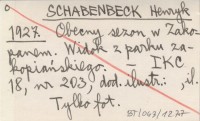 SCHABENBECK Henryk
1927. Obecny sezon w Zako-
panem. Widok z parku za-
kopiańskiego. – IKC
18, nr 203, dod. ilustr.: , il.
Tylko fot.
BT/049/1277